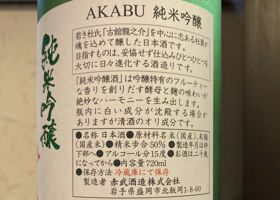 AKABU 純米吟醸
若き杜氏「古舘龍之介」を中心に志ある社員が
魂を込めて醸した日本酒です。
目指すものは、妥協せず仕込みひとつひとつを
大切に日々進化する酒造りです。
「純米吟醸酒」は吟醸特有のフルーティー
な香りを創りだす酵母と麹の味わいが
絶妙なハーモニーを生み出します。
瓶内に白い成分が沈殿する場合が
ありますが清酒のオリ成分です。
●名称 日本酒●原材料名 米(国産)、米麹
(国産米)●精米歩合 50%●製造年月は枠
下部へ●アルコール分15度●お酒は二十歳
になってから●内容量 720ml
●保存方法 冷蔵庫にて保存
製造者 赤武酒造株式会社
岩手県盛岡市北飯岡1-8-60
純米吟醸